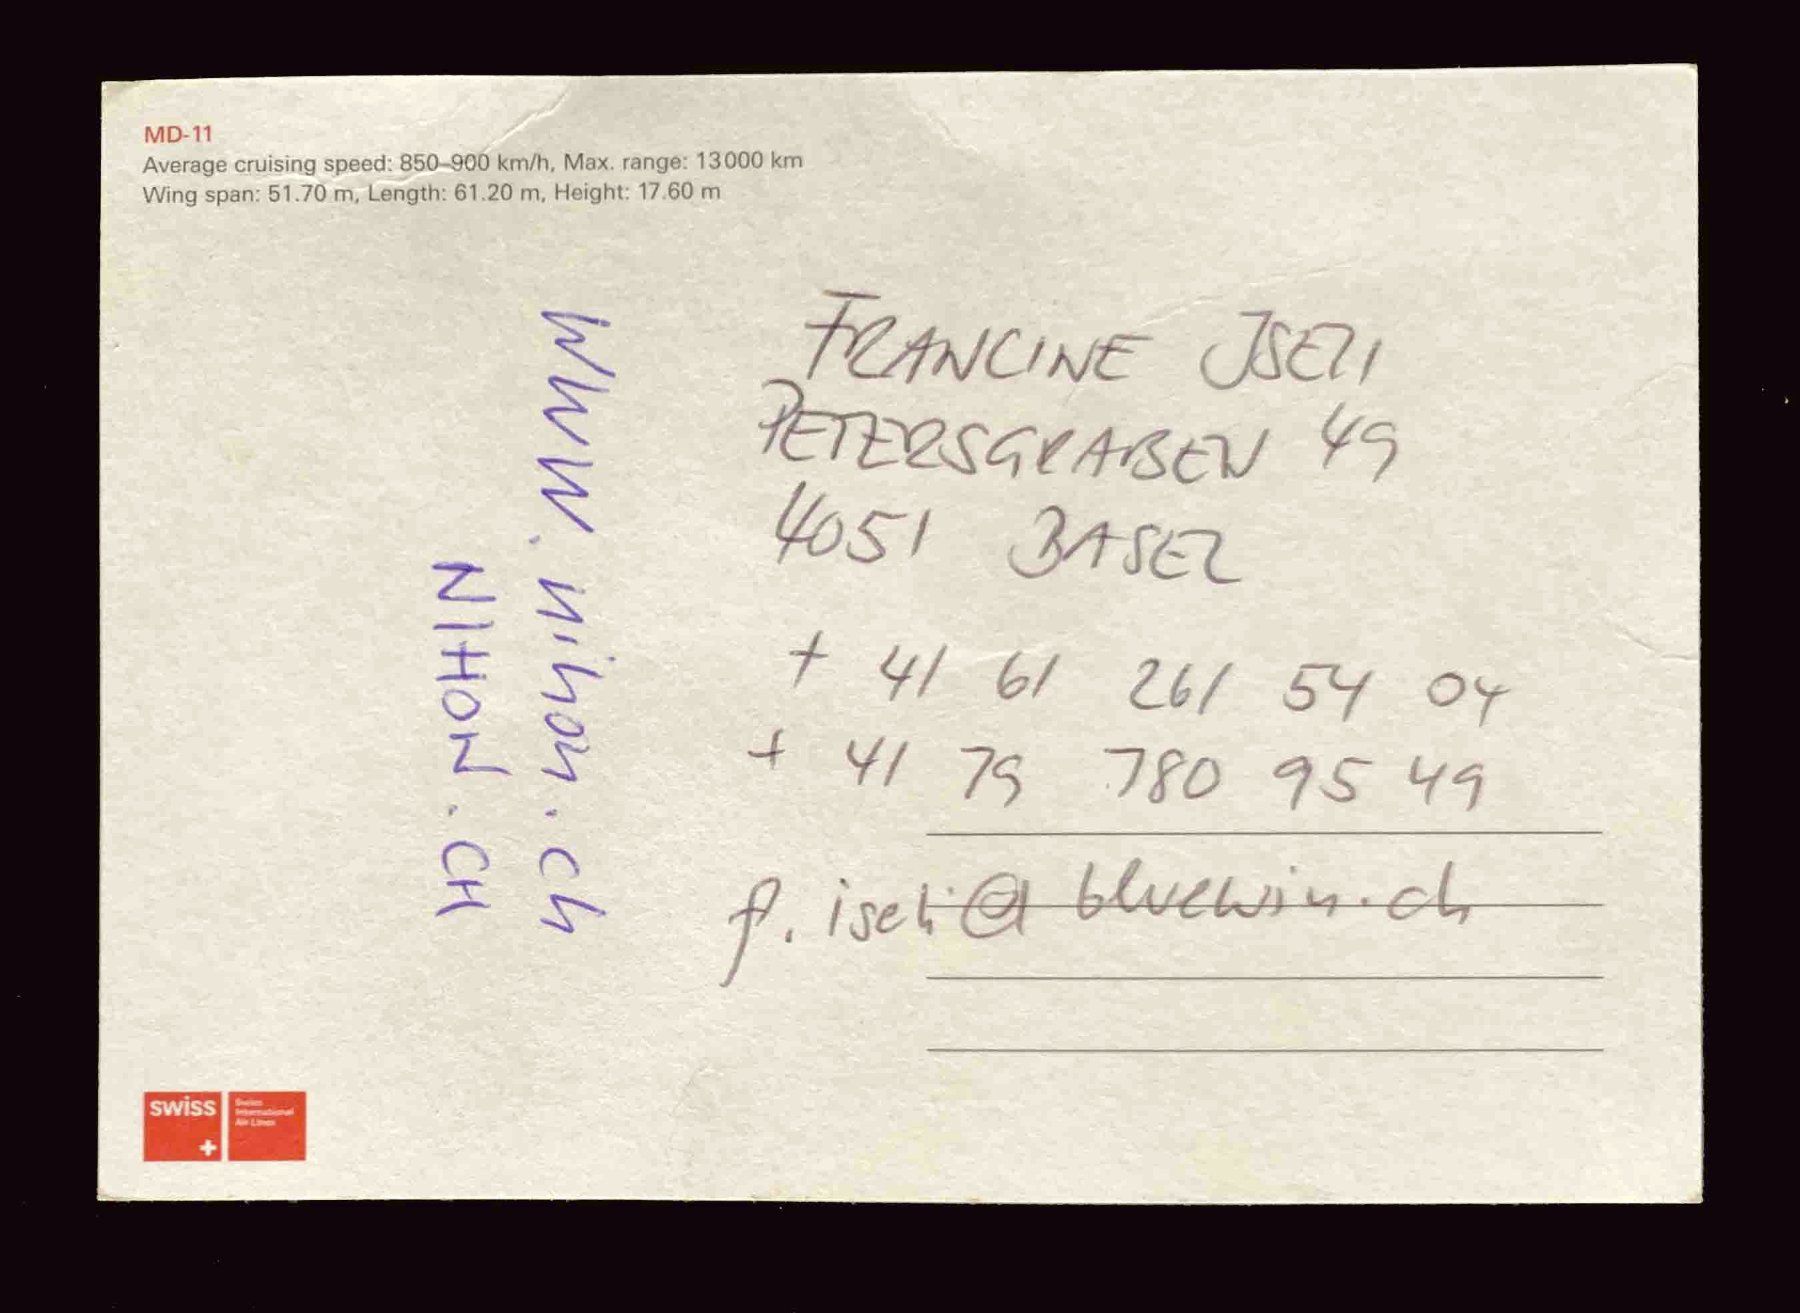 MD-11
Average cruising speed: 850–900 km/h, Max. range: 13 000 km
Wing span: 51.70 m, Length: 61.20 m, Height: 17.60 m
FRANCINE ISELI
PETERSGRABEN 49
4051 BASEL
+ 41 61 261 54 04
+ 41 79 780 95 49
f.iseli@bluewin.ch
www.nihon.ch
NIHON.CH
swiss
Swiss
International
Air Lines